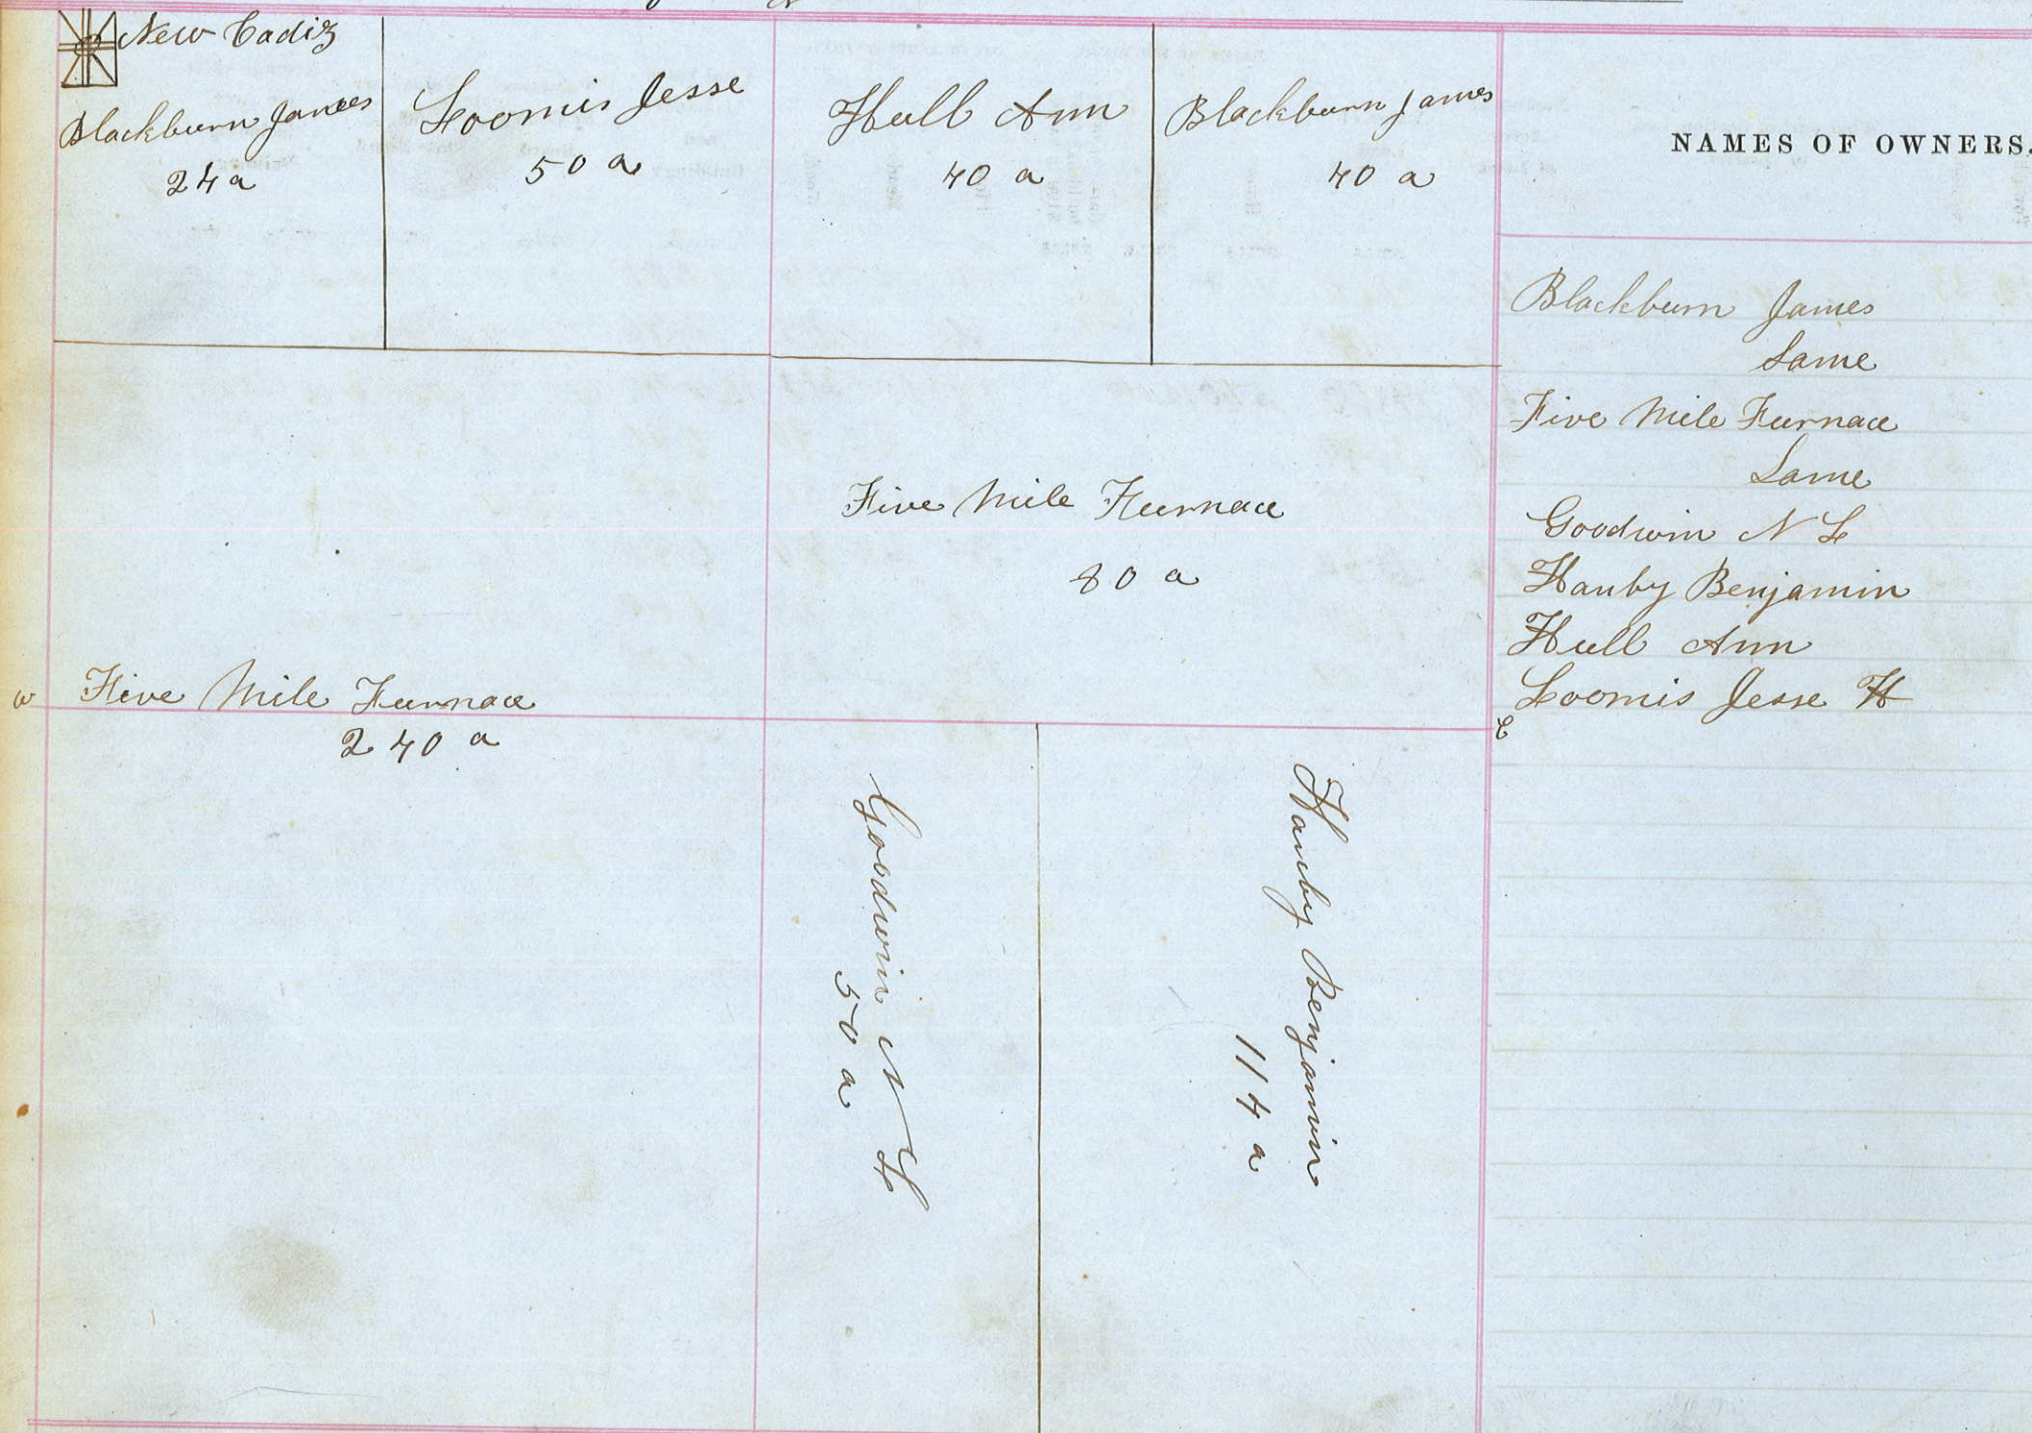 New Cadiz
Blackburn James
24 a
Loomis Jesse
50 a
Hull Ann
40 a
Blackburn James
40 a
Five Mile Furnace
80 a
w
Five Mile Furnace
240 a
Goodwin N L
50 a
Hanby Benjamin
114 a
E
NAMES OF OWNERS.
Blackburn James
Same
Five Mile Furnace
Same
Goodwin N L
Hanby Benjamin
Hull Ann
Loomis Jesse H